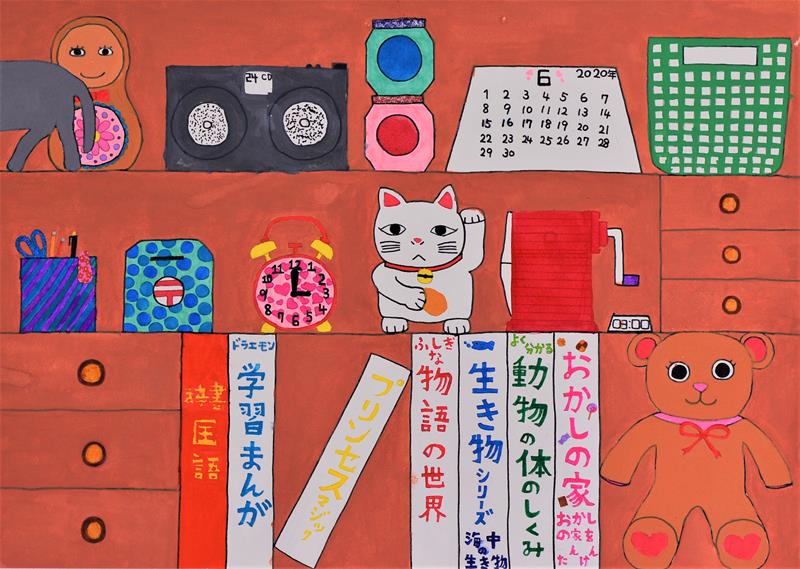 24 CD
6 2020年
1 2 3 4 5 6 7
8 9 10 11 12 13 14
15 16 17 18 19 20 21
22 23 24 25 26 27 28
29 30
12 1 2 3 4 5 6 7 8 9 10 11
03:00
辞書
国語
ドラエモン
学習まんが
プリンセスマジック
ふしぎな
物語の世界
生き物シリーズ
よく分かる
動物の体のしくみ
おかしの家